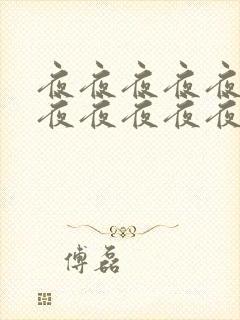 夜夜夜夜夜
夜夜夜夜夜
傅磊